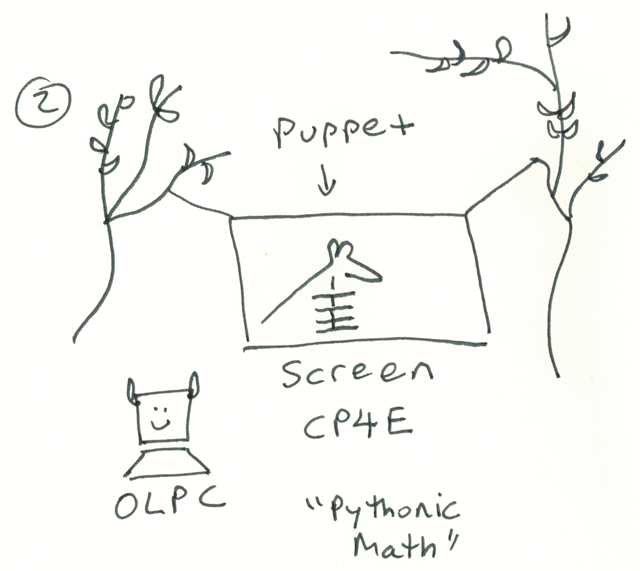 2
puppet
Screen
CP4E
OLPC
"Pythonic
Math"